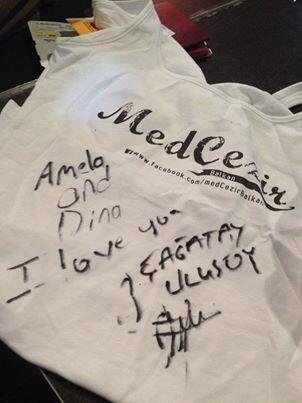 MedCezir
Balkan
www.facebook.com/medCezirBalkan
Amela
and
Dina
I love you
ÇAĞATAY
ULUSOY